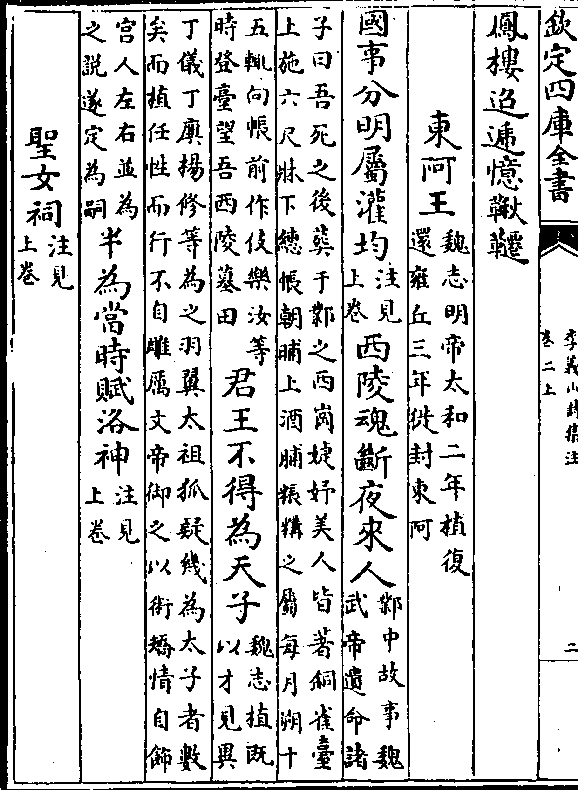 欽定四庫全書
李義山詩集注
卷二上
二
鳳樓迢遞憶鞦韆
東阿王
魏志明帝太和二年植復
還雍丘三年徙封東阿
國事分明屬灌均
注見
上卷
西陵魂斷夜來人
鄴中故事魏
武帝遺命諸
子曰吾死之後葬于鄴之西崗婕妤美人皆著銅雀臺
上施六尺牀下繐帳朝晡上酒脯粻糒之屬每月朔十
五輒向帳前作伎樂汝等
時登臺望吾西陵墓田
君王不得為天子
魏志植既
以才見異
丁儀丁廙揚修等為之羽翼太祖狐疑幾為太子者數
矣而植任性而行不自雕厲文帝御之以術矯情自飾
宫人左右並為
之説遂定為嗣
半為當時賦洛神
注見
上卷
聖女祠
注見
上卷